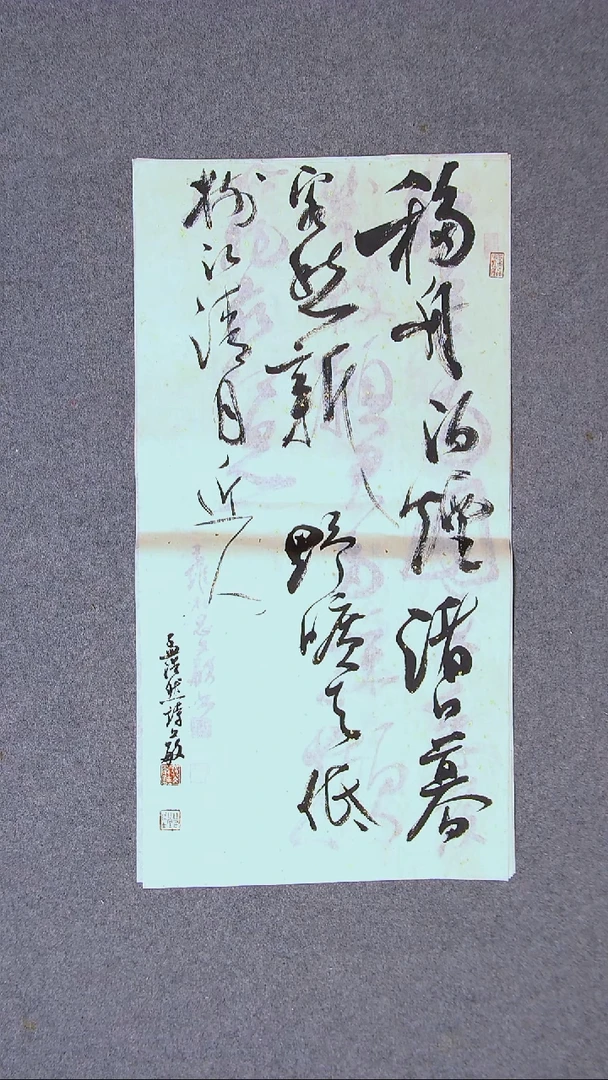 移舟泊煙渚日暮
客愁新野曠天低
樹江清月近人
孟浩然詩